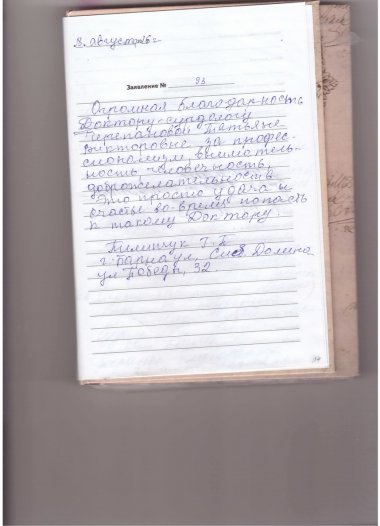 8. август 16 г
Заявление № 93
Огромная благодарность
Доктору-сурдологу
Черепановой Татьяне
Викторовне за профес-
сионализм, вниматель-
ность, человечность,
доброжелательность
Это просто удача и
счастье во-время попасть
к такому Доктору.
Пилипчук Г.П
г Барнаул, Сиб Долина
ул Победы, 32